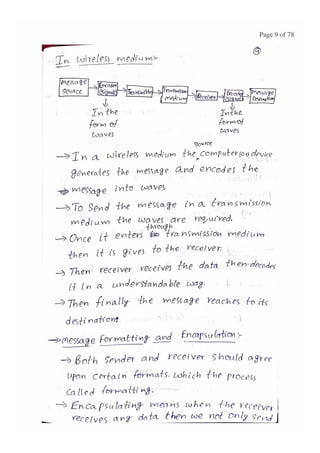 Page 9 of 78
9
In wireless medium:-
Message source
Encoded Signal
Transmitter
Transmission medium
Receiver
Decoded Signal
Message Destination
In the form of waves
In the form of waves
source
→ In a wireless medium the computer (or) device
generates the message. and encodes the
message into waves.
→ To send the message in a transmission
medium the waves are required.
through
→ Once it enters transmission medium
then it is gives to the receiver.
→ Then receiver receives the data then decodes
it in a understandable way.
→ Then finally the message reaches to its
destination.
→ Message Formatting and Encapsulation:-
→ Both Sender and receiver should agree
upon certain formats. which the process
called formatting.
→ Encapsulating means when the receiver
receives any data then we not only send